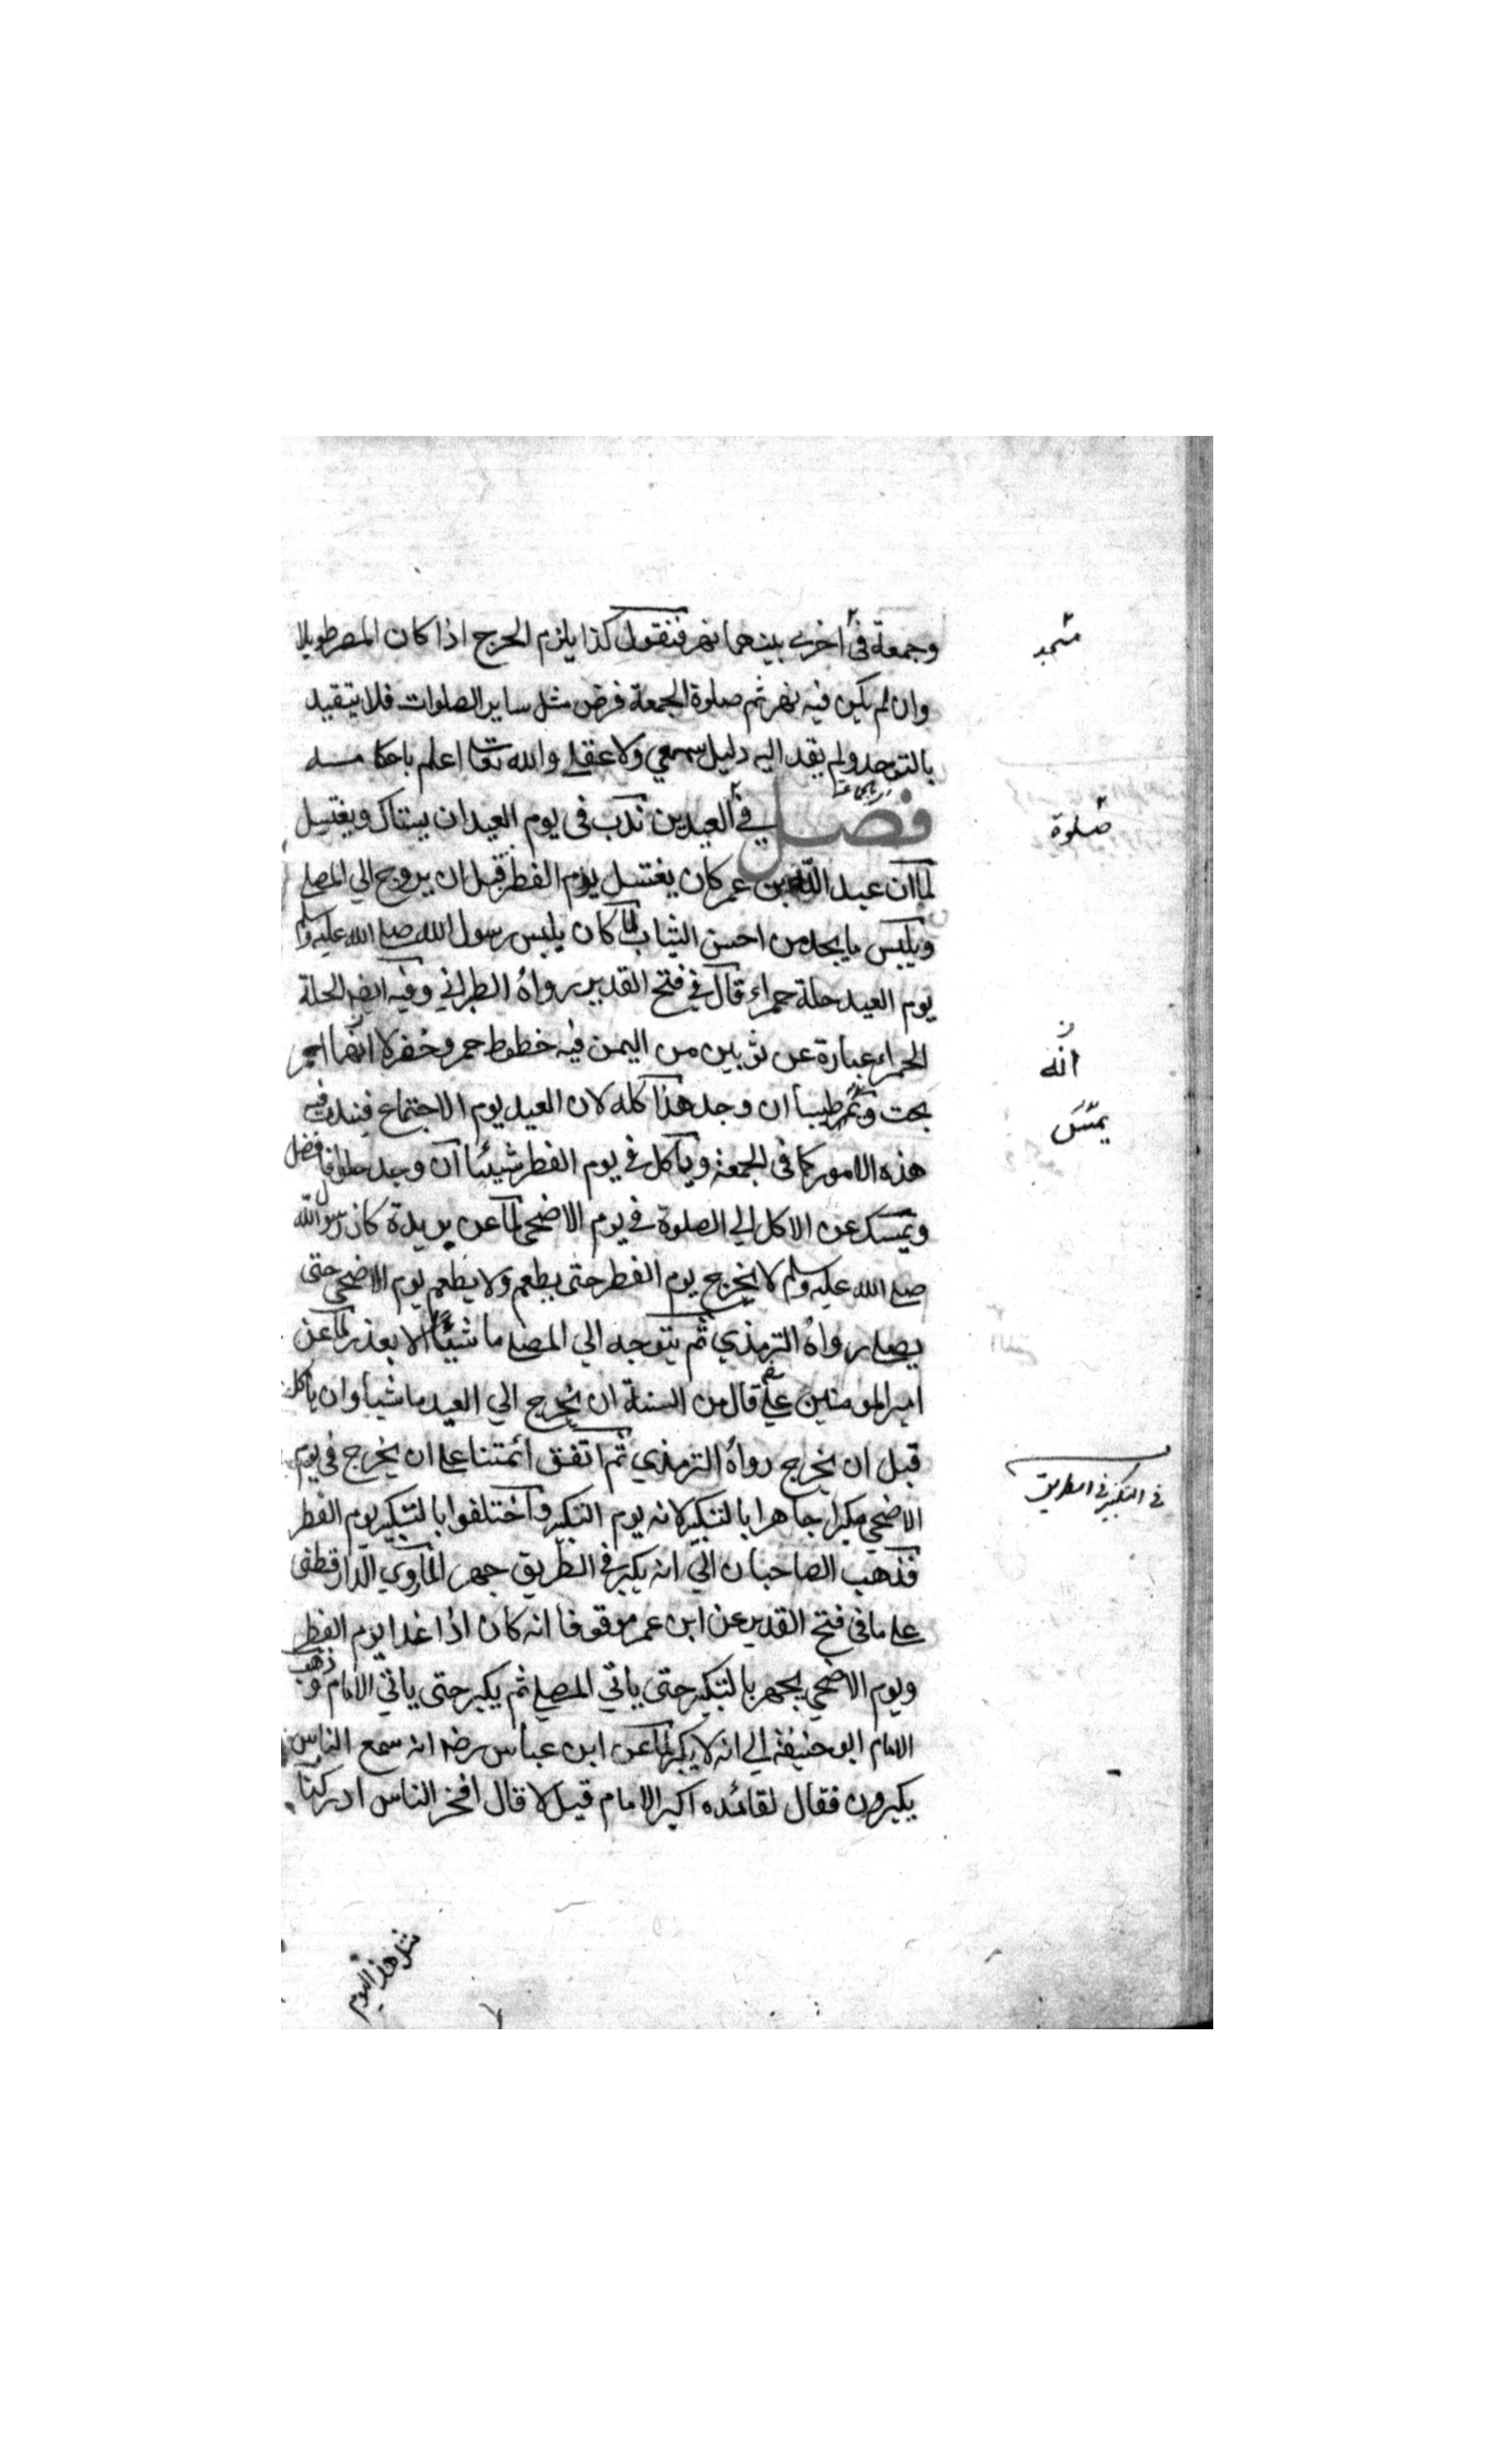 وجمعة في اخرى بينهما نهر فنقول كذا يلزم الحرج اذا كان المصر طويلا
مسجد
وان لم يكن فيه نهر ثم صلوة الجمعة فرض مثل ساير الصلوات فلا يتقيد
بالتوحد ولم يقد اليه دليل سمعي ولا عقلي والله تعا اعلم باحكامه
فصل في العيدين ندب في يوم العيد ان يستاك ويغتسل
صلوة
لما ان عبد الله بن عمر كان يغتسل يوم الفطر قبل ان يروح الي المصلي
ويلبس ما يجد من احسن الثياب لما كان يلبس رسول الله صلي الله عليه وسلم
يوم العيد حلة حمراء قال في فتح القدير رواه الطبراني وفيه ايضا الحلة
الحمراء عبارة عن ثوبين من اليمن فيه خطوط حمر وخضر لا انها احمر
انه
بحت طيبا ان وجد هذا كله لان العيد يوم الاجتماع فيندب فيه
يمسّ
هذه الامور كما في الجمعة وياكل في يوم الفطر شيئا ان وجد حلوا فافضل
ويمسك عن الاكل الي الصلوة في يوم الاضحي لما عن بريدة كان رسول الله
صلي الله عليه وسلم لا يخرج يوم الفطر حتى يطعم ولا يطعم يوم الاضحي حتى
يصلي رواه الترمذي ثم يتوجه الي المصلي ماشيًا الا بعذر لما عن
امير المومنين علي قال من السنة ان يخرج الي العيد ماشيا وان ياكل
قبل ان يخرج رواه الترمذي ثم اتفق ائمتنا علي ان يخرج في يوم
في التكبير في الطريق
الاضحي مكبرا جاهرا بالتكبير لانه يوم التكبير واختلفوا بالتكبير يوم الفطر
فذهب الصاحبان الي انه يكبر في الطريق جهرا لما روي الدارقطني
علي ما في فتح القدير عن ابن عمر موقوفا انه كان اذا غدا يوم الفطر
ويوم الاضحي يجهر بالتكبير حتى ياتي المصلي ثم يكبر حتى ياتي الامام وذهب
الامام ابو حنيفة الي انه لا يكبر لما عن ابن عباس رضه انه سمع الناس
يكبرون فقال لقائده اكبر الامام قيل لا قال افجن الناس ادركنا
مثل هذا اليوم